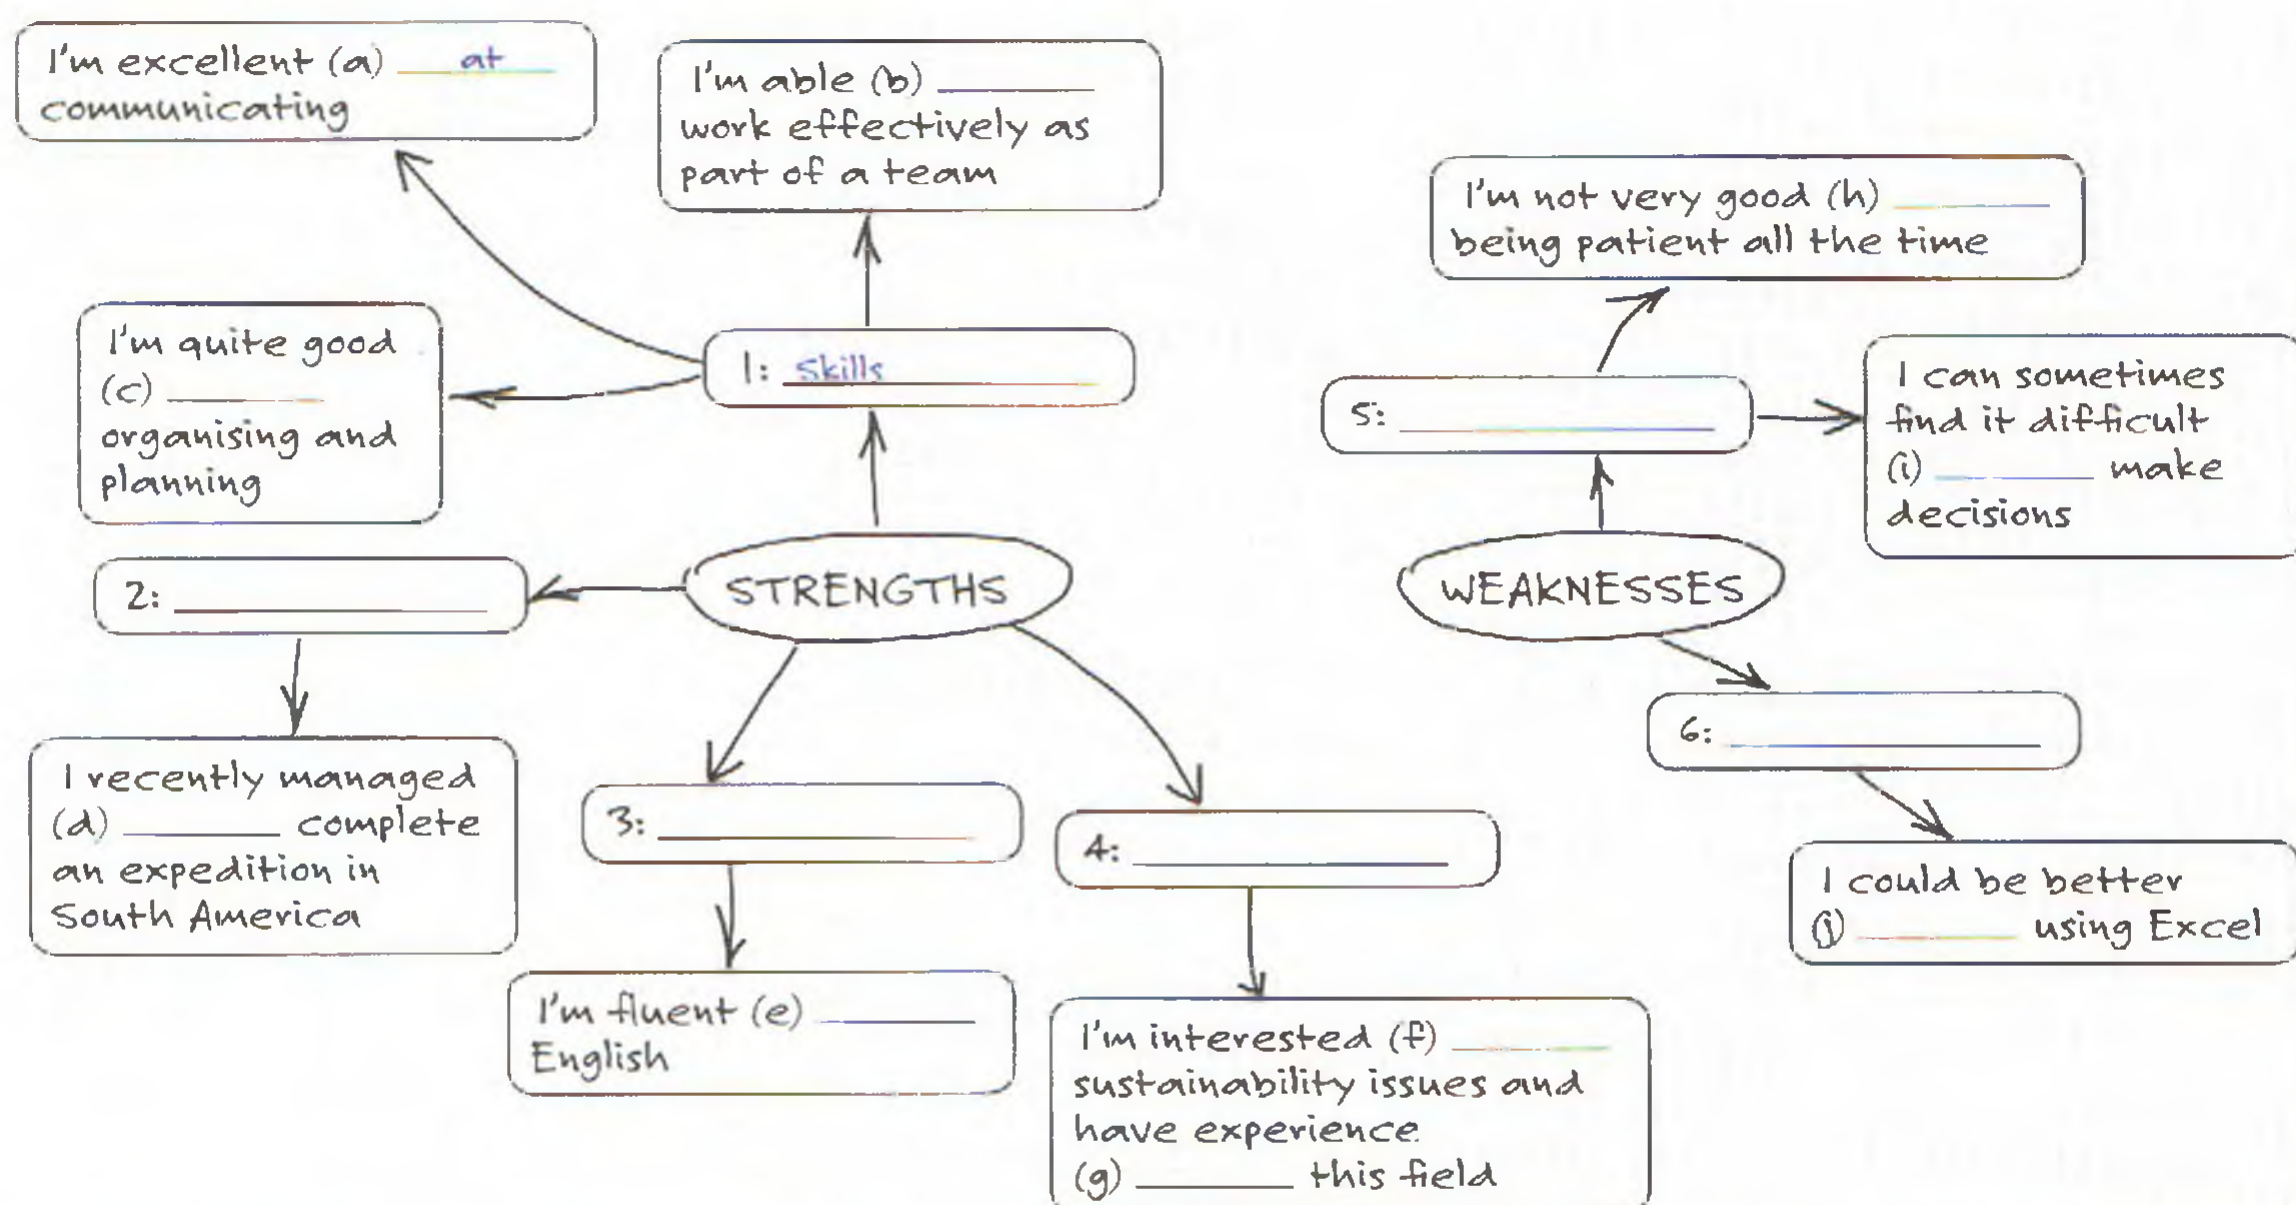 I'm excellent (a) at
communicating
I'm able (b)
work effectively as
part of a team
I'm quite good
(c)
organising and
planning
1: Skills
2:
STRENGTHS
I recently managed
(d) complete
an expedition in
South America
3:
I'm fluent (e)
English
4:
I'm interested (f)
sustainability issues and
have experience
(g) this field
I'm not very good (h)
being patient all the time
5:
I can sometimes
find it difficult
(i) make
decisions
WEAKNESSES
6:
I could be better
(j) using Excel